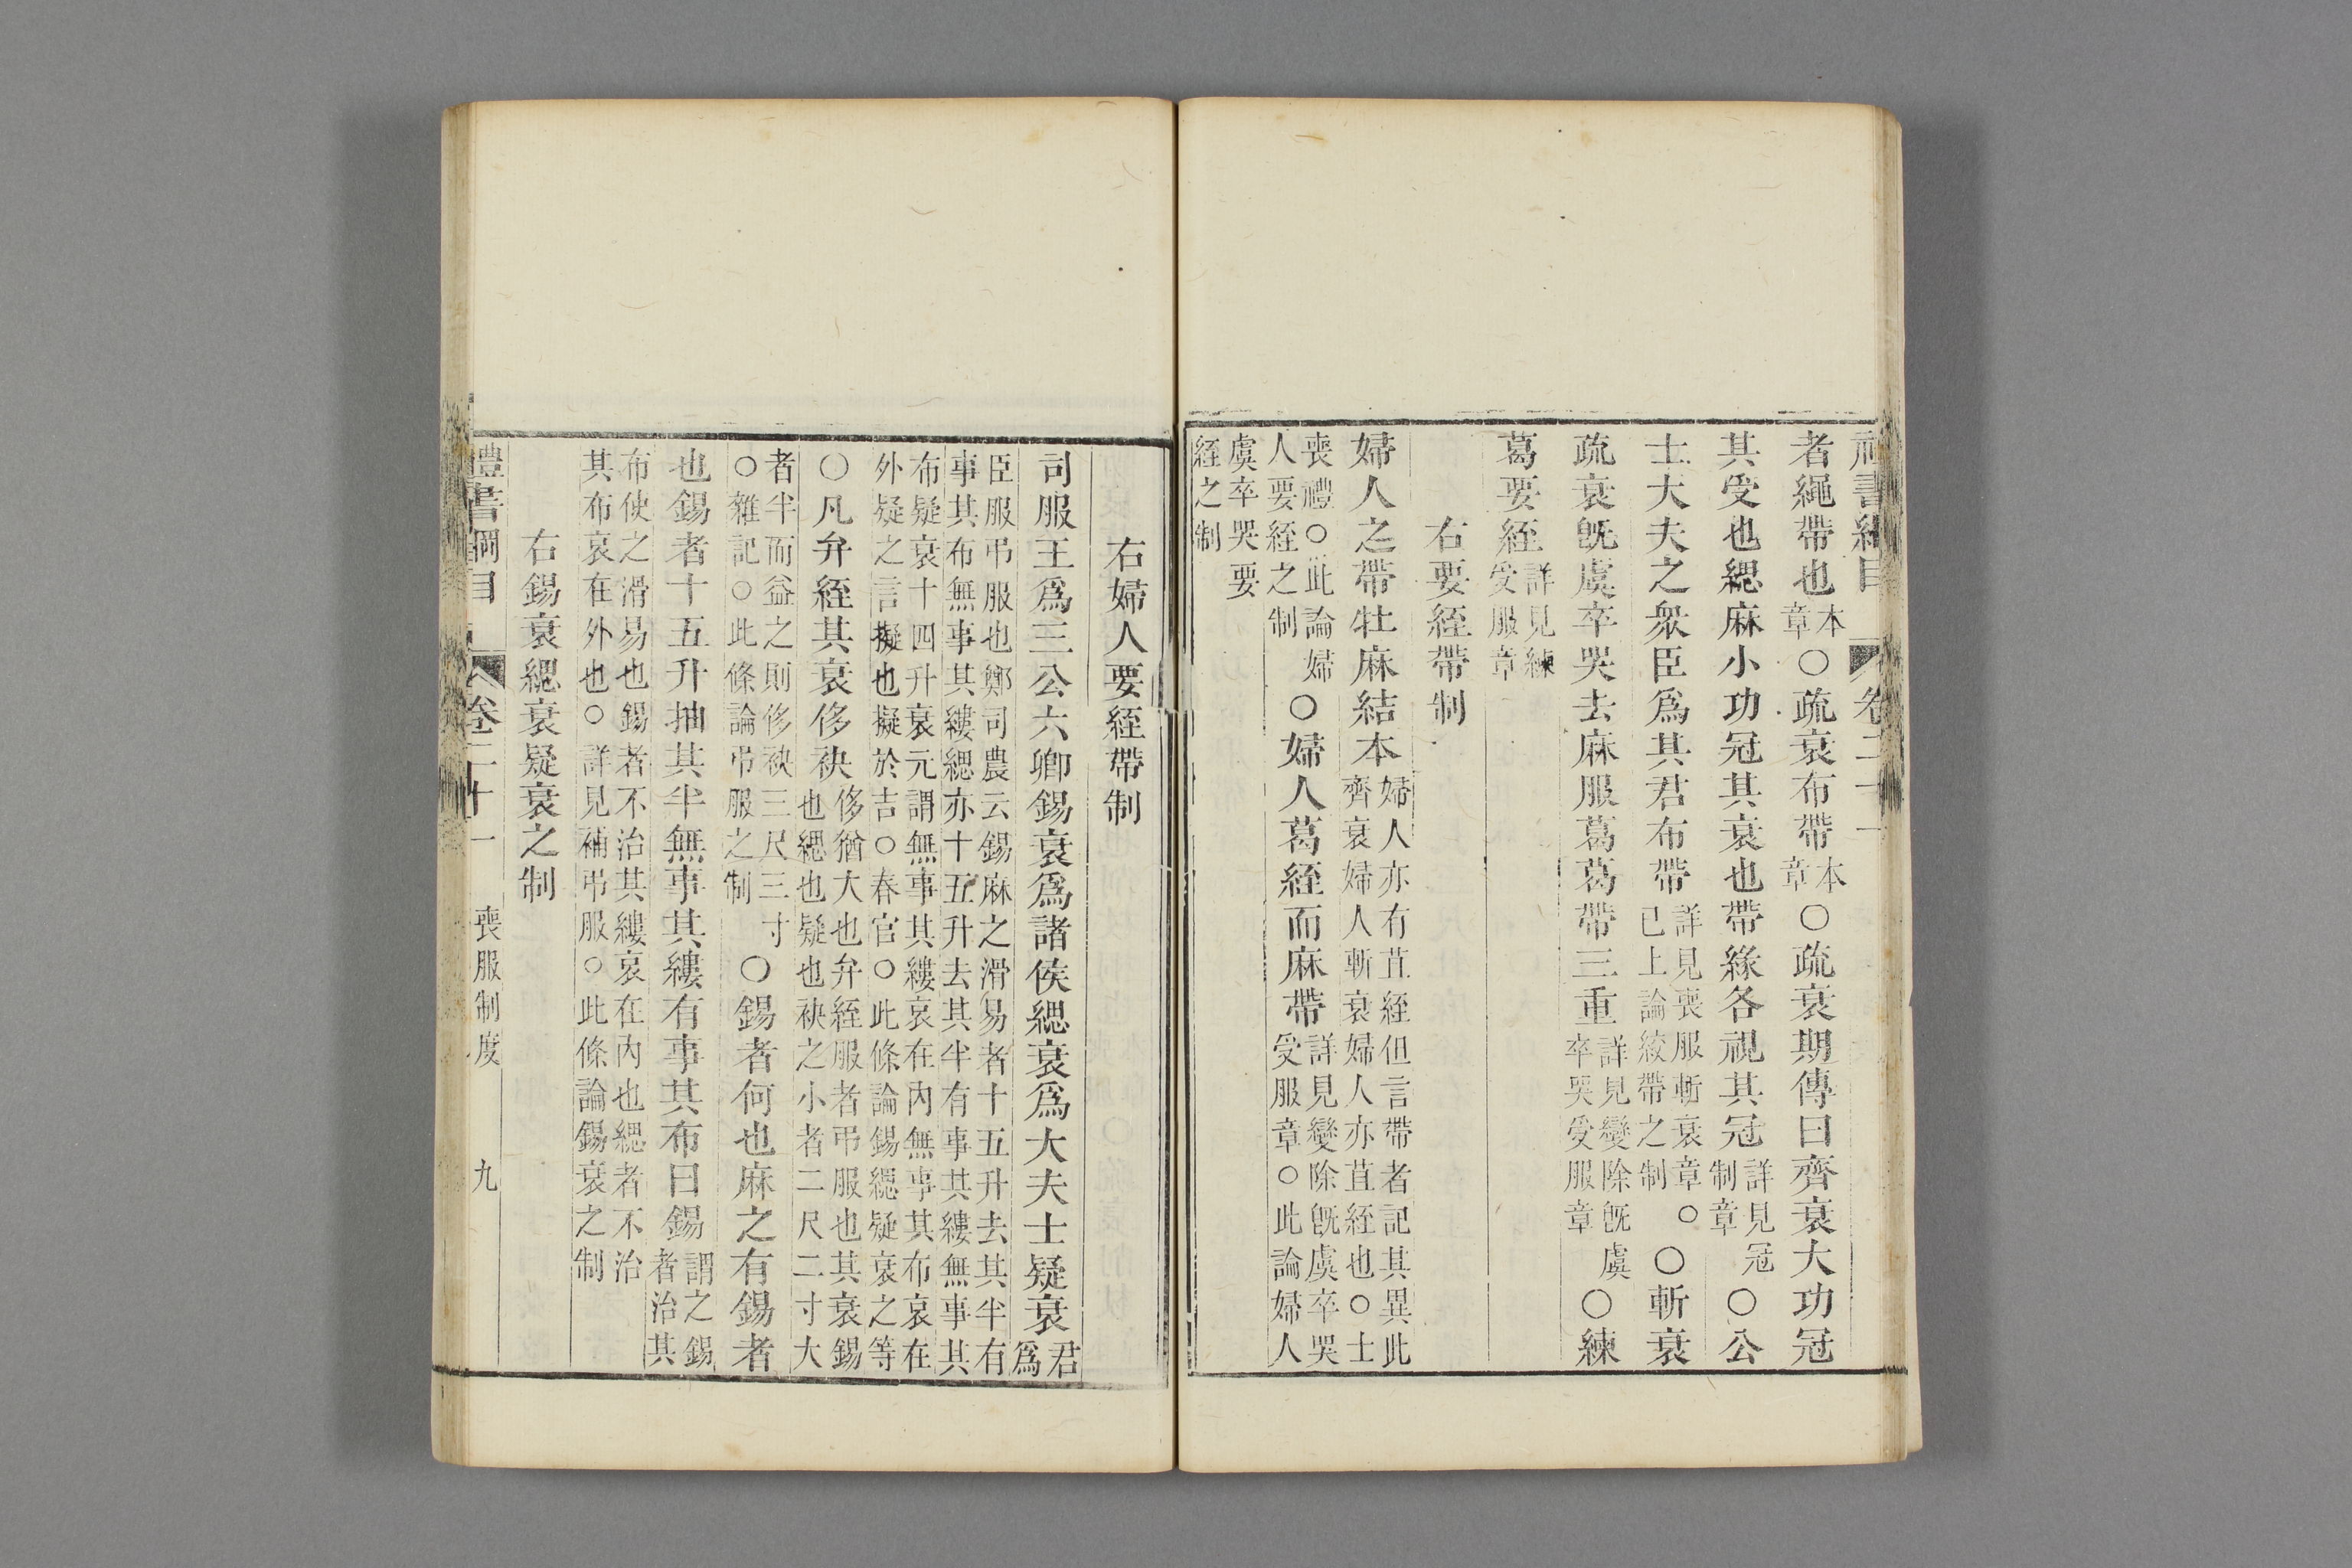 禮書綱目 卷二十一
者繩帶也本章○疏衰布帶本章○疏衰期傳曰齊衰大功冠
其受也緦麻小功冠其衰也帶緣各視其冠詳見冠制章○公
士大夫之衆臣爲其君布帶詳見喪服斬衰章○已上論絞帶之制○斬衰
疏衰旣虞卒哭去麻服葛葛帶三重詳見變除旣虞卒哭受服章○練
葛要絰詳見練受服章
右要絰帶制
婦人之帶牡麻結本婦人亦有苴絰但言帶者記其異此齊衰婦人斬衰婦人亦苴絰也○士
喪禮○此論婦人要絰之制○婦人葛絰而麻帶詳見變除旣虞卒哭受服章○此論婦人
虞卒哭要絰之制
右婦人要絰帶制
司服王爲三公六卿錫衰爲諸侯緦衰爲大夫士疑衰君爲
臣服弔服也鄭司農云錫麻之滑易者十五升去其半有事其布無事其縷緦亦十五升去其半有事其縷無事其
布疑衰十四升衰元謂無事其縷哀在內無事其布哀在外疑之言擬也擬於吉○春官○此條論錫緦疑衰之等
○凡弁絰其衰侈袂侈猶大也弁絰服者弔服也其衰錫也緦也疑也袂之小者二尺二寸大
者半而益之則侈袂三尺三寸○雜記○此條論弔服之制○錫者何也麻之有錫者
也錫者十五升抽其半無事其縷有事其布曰錫謂之錫者治其
布使之滑易也錫者不治其縷哀在內也緦者不治其布哀在外也○詳見補弔服○此條論錫衰之制
右錫衰緦衰疑衰之制
禮書綱目 卷二十一 喪服制度 九